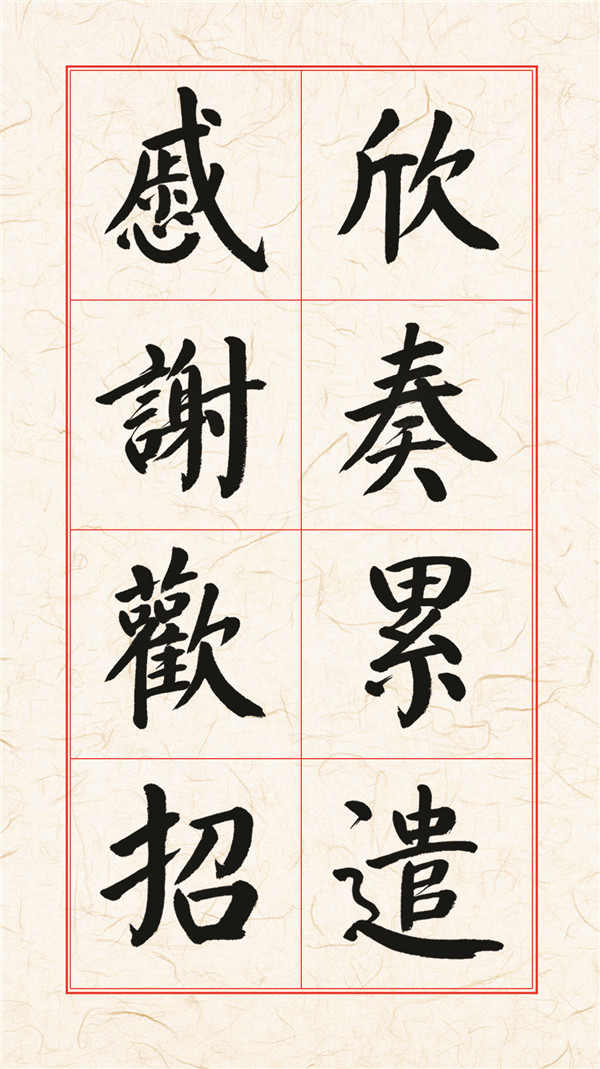 欣奏累遣
慼謝歡招